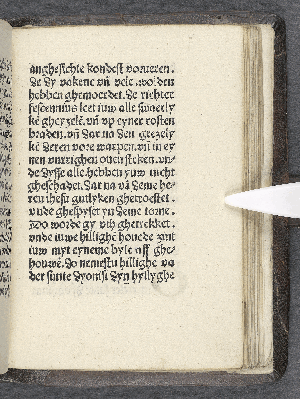 anghesichte kondest vorueren.
de dy vakene vn̄ vele. wolden
hebben ghemoerdet. de richter
fescennius leet iuw alle swaerly
kē gheyzelē. vn̄ vp eyner rosten
braden. vn̄ dar na den grezely
kē deren vore warpen. vn̄ in ey
nen vurighen ouen steken. vn-
de dysse alle hebben yuw nicht
gheschadet. dar na vā deme he-
ren ihesu gutlyken ghetrostet.
vnde ghespyset yn deme torne.
zo worde gy vth ghetrekket.
vnde iuwe hillighe houede zint
iuw myt eyneme byle aff ghe-
houwē. do nemestu hillighe va
der sunte dyonisi dyn hyllyghe